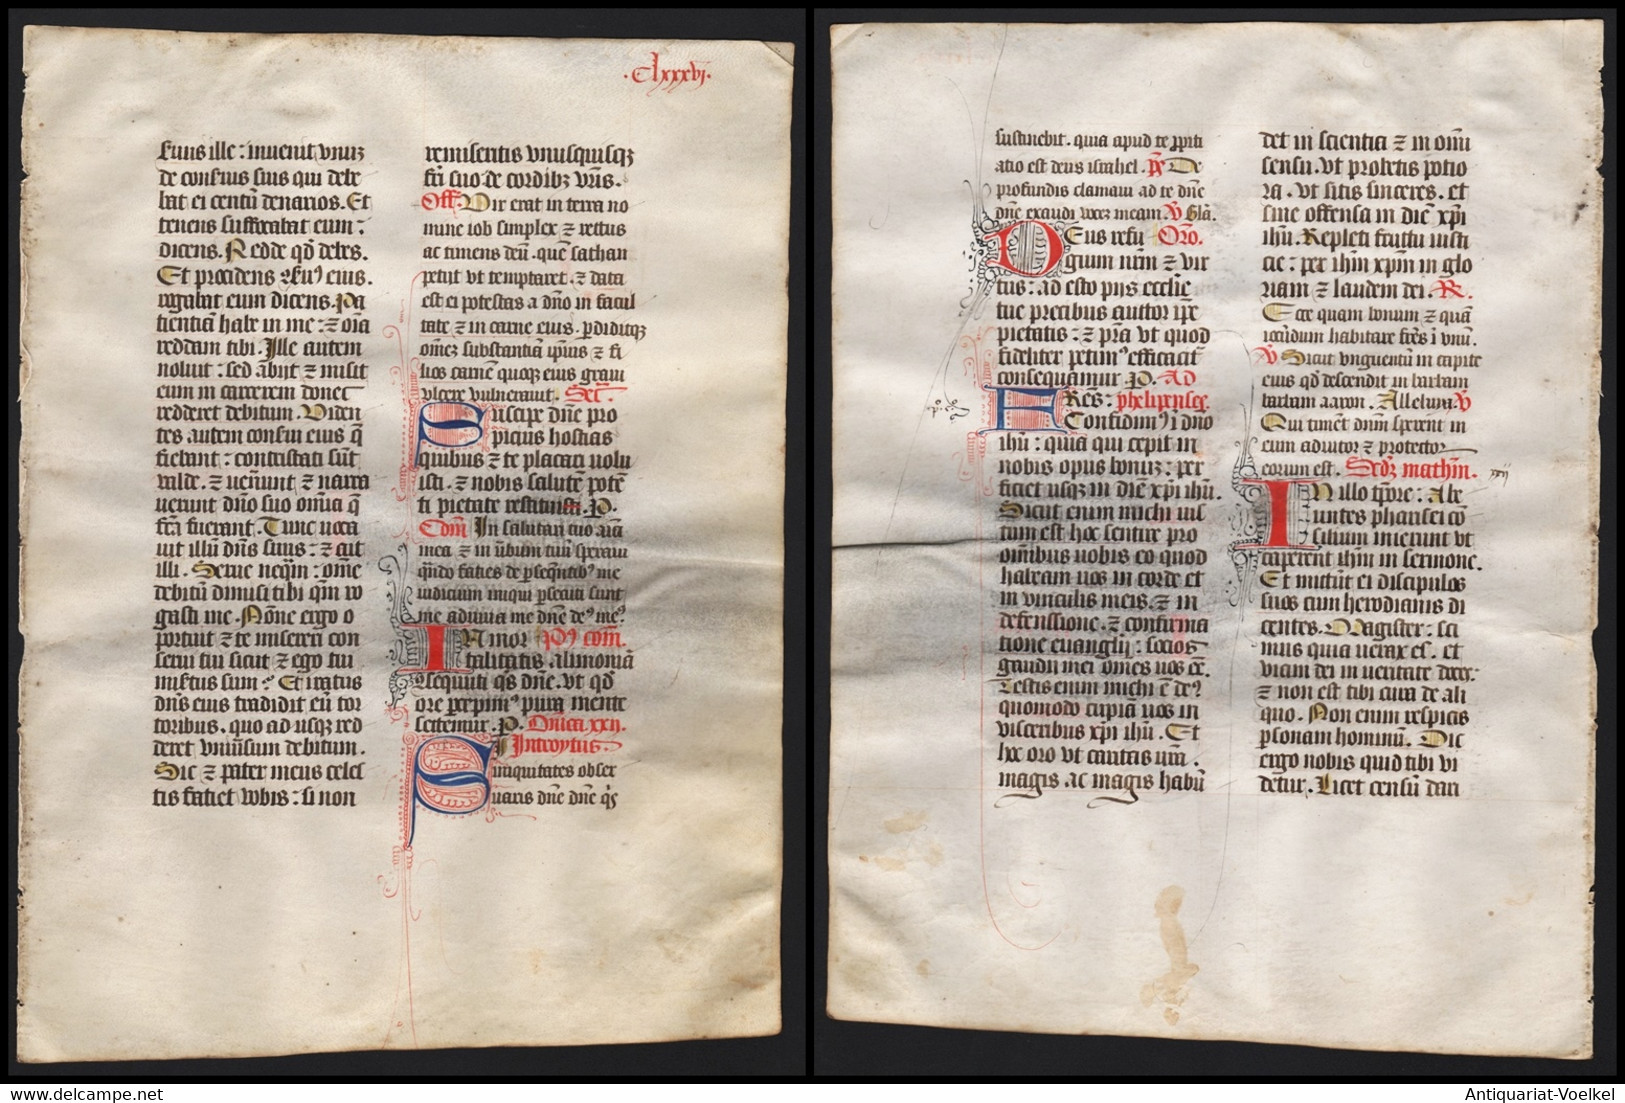 ·Clxxxvj·
seruus ille: inuenit vnuz
de conseruis suis qui debe
bat ei centū denarios. Et
tenens suffocabat eum:
dicens. Redde qď debes.
Et procidens ẜeruꝰ eius.
rogabat eum dicens. Pa
tientiā habe in me: ⁊ oīa
reddam tibi. Ille autem
noluit: sed abijt ⁊ misit
eum in carcerem donec
redderet debitum. Viden
tes autem conserui eius q̄
fiebant: contristati sūt
valde. ⁊ uenerūt ⁊ narra
uerunt dn̄o suo omīa q̄
fc̄a fuerant. Tunc uoca
uit illū dn̄s suus: ⁊ ait
illi. Serue neq̄m: om̄e
debitū dimisi tibi qm̄ ro
gasti me. Nōne ergo o
portuit ⁊ te misereri con
serui tui sicut ⁊ ego tui
misertus sum? Et iratus
dn̄s eius tradidit eū tor
toribus. quo ad usqꝫ red
deret vniūsum debitum.
Sic ⁊ pater meus celes
tis faciet vobis: si non
remiseritis vnusquisqꝫ
fr̄i suo de cordibꝫ vr̄is.
Off. Vir erat in terra no
mine iob simplex ⁊ rectus
ac timens deū. que sathan
petijt vt temptaret. ⁊ data
est ei potestas a dn̄o in facul
tate ⁊ in carne eius. ꝑdiditqꝫ
om̄ez substantiā ip̄ius ⁊ fi
lios carnē quoqꝫ eius graui
vlcere vulnerauit. Sec̄.
Suscipe dn̄e pro
picius hostias
quibus ⁊ te placari uolu
isti. ⁊ nobis salutē potē
ti pietate restitui. P.
Com̄ In salutari tuo aīa
mea ⁊ in ūbum tuū sperauí
qn̄do facies de ꝑsequētibꝰ me
iudicium iniqui ꝑsecuti sunt
me adiuua me dn̄e deꝰ meꝰ.
In mor Pꝰ com̄.
talitatis alimoniā
ꝯsequuti q̄s dn̄e. vt qď
ore ꝑcepimꝰ pura mente
sectemur. P. Dn̄ica. xxij.
Introytus
Si iniquitates obser
uaris dn̄e dn̄e q̇s
sustinebit. quia apud te ꝓpiti
atio est deus israhel. Ps̄ De
profundis clamaui ad te dn̄e
dn̄e exaudi vocez meam. V̄ Glā.
Deus refu Oro.
gium nr̄m ⁊ vir
tus: ad esto pijs ecclīe
tue precibus auctor ip̄e
pietatis: ⁊ pr̄a vt quod
fideliter petimꝰ efficacit̄
consequamur P. Ad
Fres: phelipenses.
Confidimꝰ ī dn̄o
ihū: quia qui cepit in
nobis opus bonuz: per
ficiet usqꝫ in diē xp̄i ihū.
Sicut enim michi ius
tum est hoc sentire pro
omībus uobis eo quod
habeam uos in corde et
in vinculis meis. ⁊ in
defenssione. ⁊ confirma
tione euanglij: socios
gaudij mei om̄es uos eē.
Testis enim michi ē deꝰ
quomodo cupiā uos in
visceribus xp̄i ihū. Et
hoc oro vt caritas ur̄a
magis. ac magis habū
det in scientia ⁊ in om̄i
sensu. vt probetis potio
ra. vt sitis sinceres. et
sine offensa in diē xp̄i
ihū. Repleti fructu iusti
cie: per ihm̄ xp̄m in glo
riam ⁊ laudem dei. R̄.
Ecce quam bonum ⁊ quā
iocūdum habitare fr̄es ī vnū.
V̄ Sicut vnguentū in capite
eius qď descendit in barbam
barbam aaron. Alleluia. V̄
Qui timēt dn̄m sperent in
eum adiutor ⁊ protector
eorum est. Sed̄z mathm̄. xxij
In illo tp̄ore: Abe
untes pharisei cō
silium inierunt vt
caperent ihm̄ in sermone.
Et mittūt ei discipulos
suos cum herodianis di
centes. Magister: sci
mus quia uerax es. et
uiam dei in ueritate doces.
⁊ non est tibi cura de ali
quo. Non enim respicis
ꝑsonam hominū. Dic
ergo nobis quid tibi vi
detur. Licet censū dari
Antiquariat-Voelkel